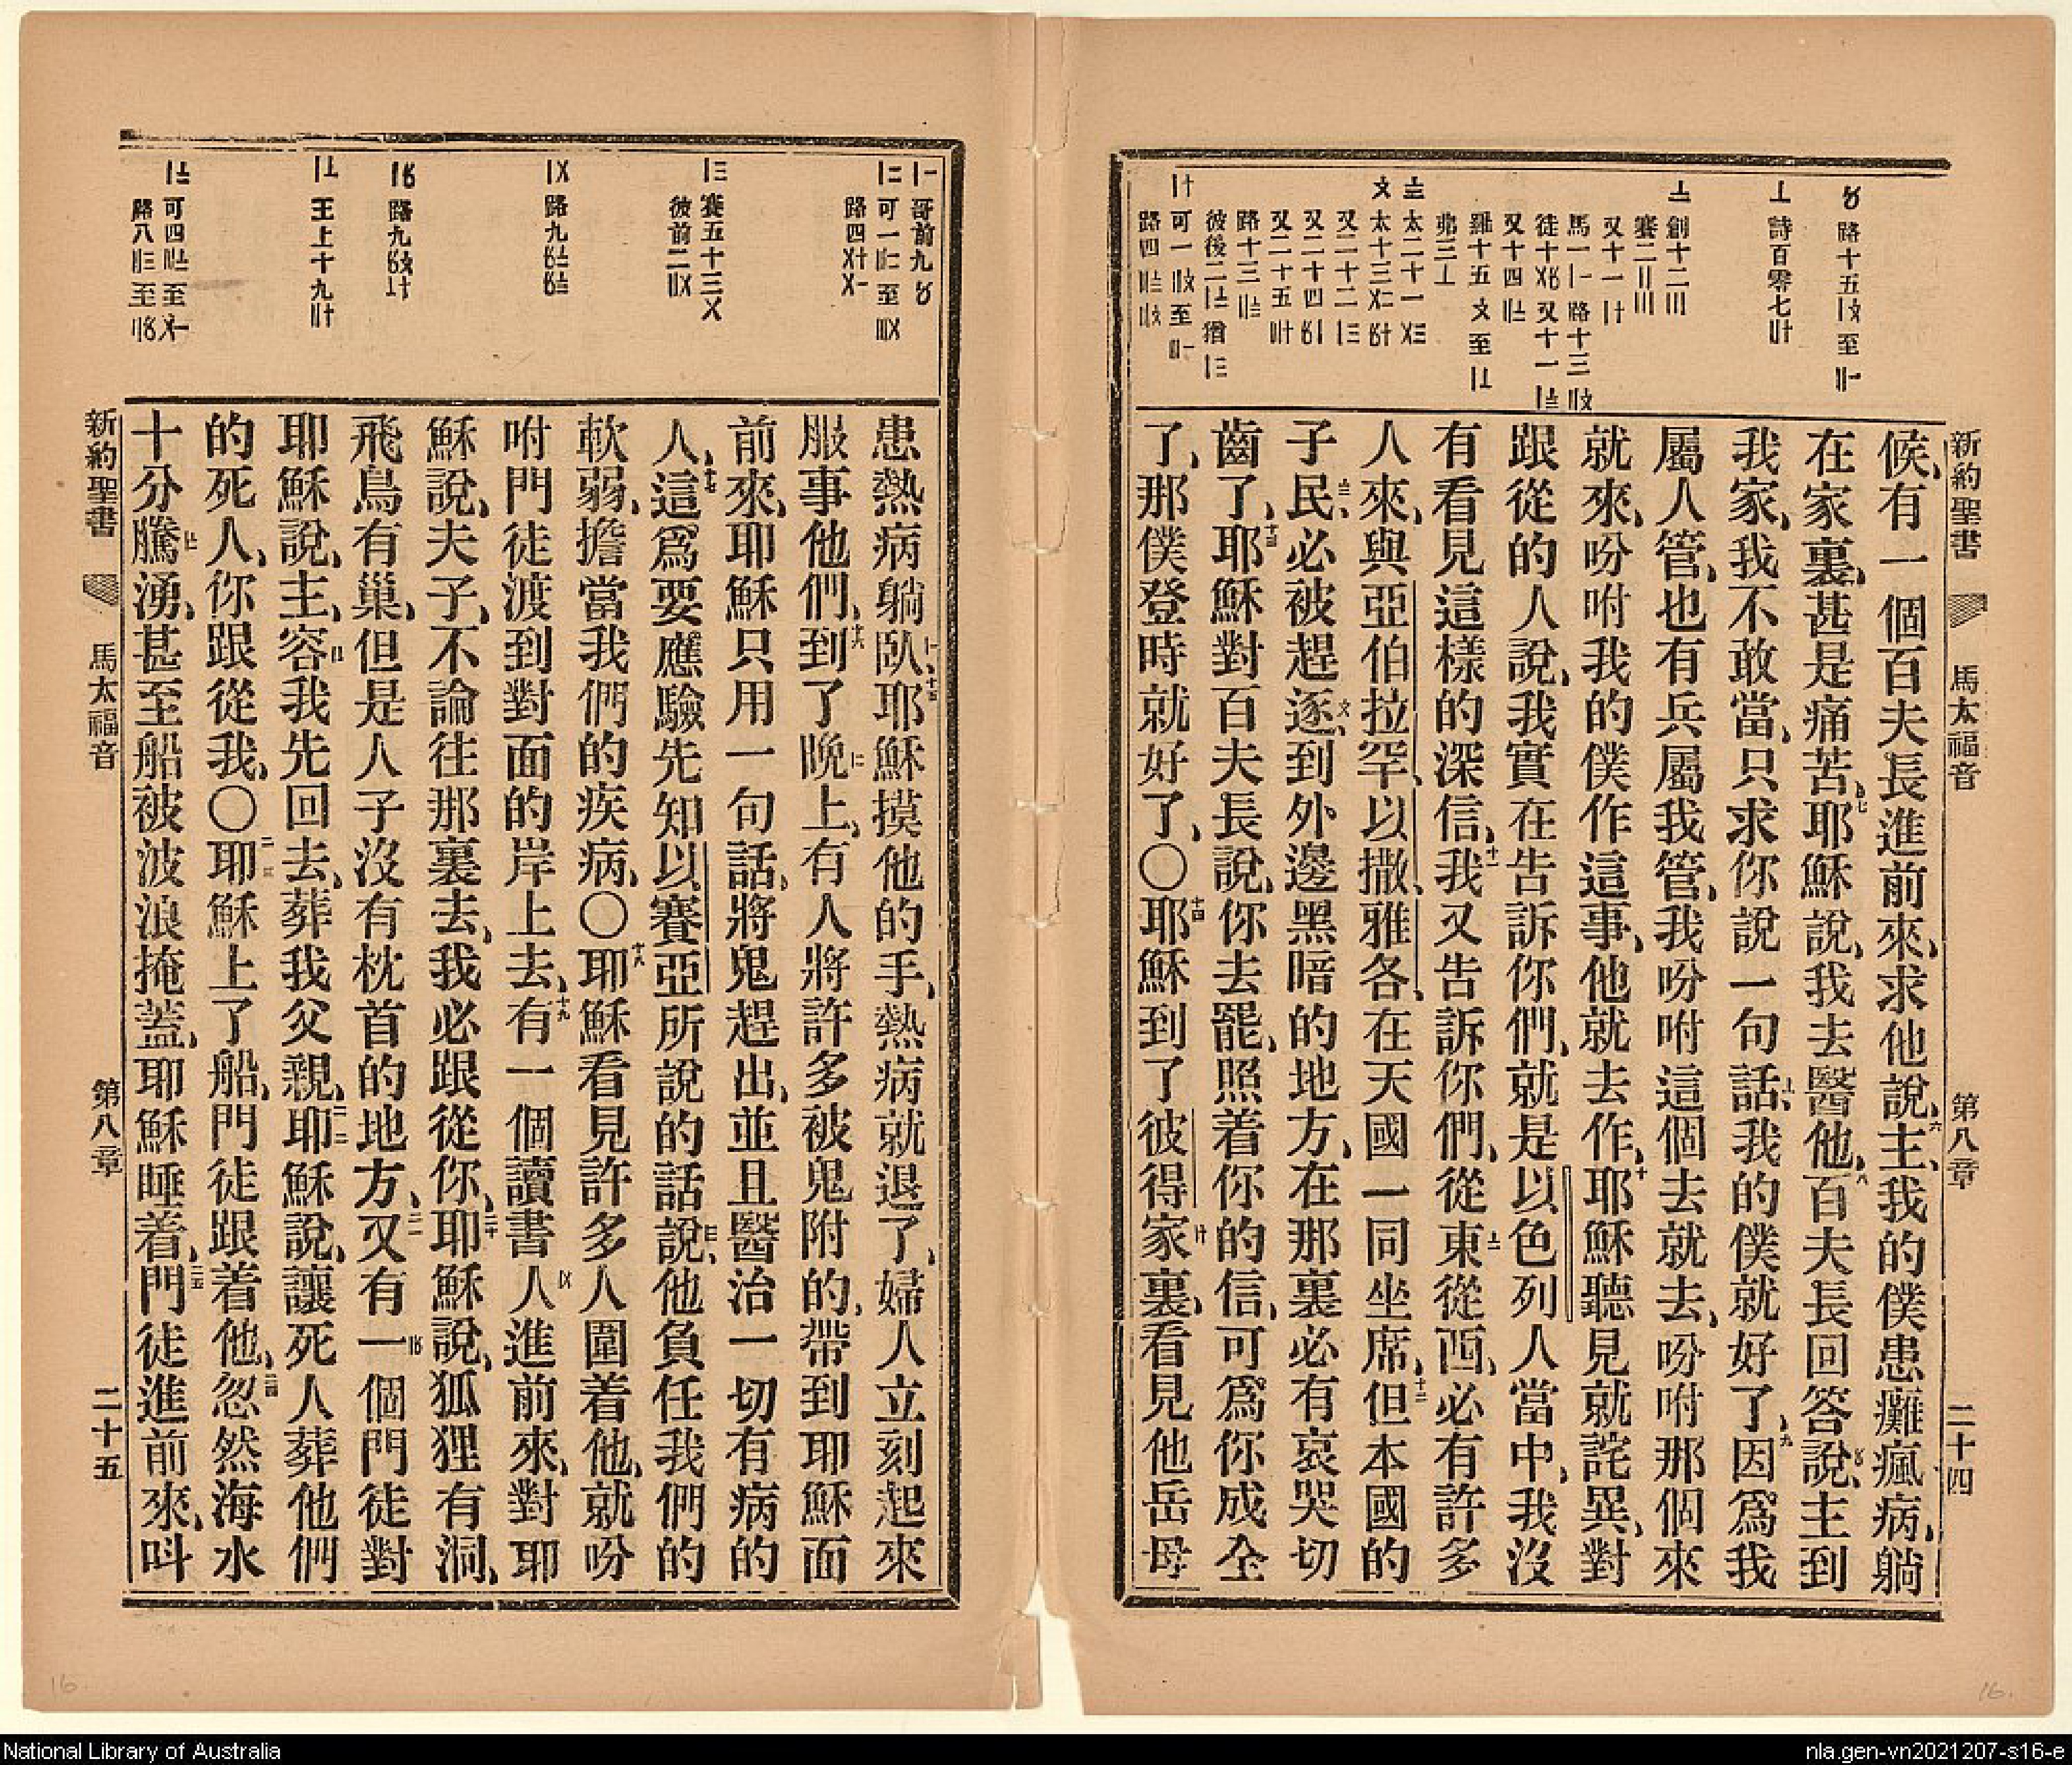 新約聖書 馬太福音 第八章 二十四
候、有一個百夫長進前來、求他說、六主、我的僕患癱瘋病、躺
在家裏、甚是痛苦、七耶穌說、我去醫他、八百夫長回答說、主到
我家、我不敢當、只求你說一句話、我的僕就好了、九因爲我
屬人管、也有兵屬我管、我吩咐這個去就去、吩咐那個來
就來、吩咐我的僕作這事、他就去作、十耶穌聽見就詫異、對
跟從的人說、我實在告訴你們、就是以色列人當中、我沒
有看見這樣的深信、十一我又告訴你們、從東從西、必有許多
人來、與亞伯拉罕、以撒、雅各、在天國一同坐席、十二但本國的
子民、必被趕逐、到外邊黑暗的地方、在那裏必有哀哭切
齒了、十三耶穌對百夫長說、你去罷、照着你的信、可爲你成全
了、那僕登時就好了、〇十四耶穌到了彼得家裏、看見他岳母
路十五〡〤至〢〡
詩百零七〢十
創十二〣
賽二〢〣
又十一〡十
馬一〡〡 路十三〢〤
又十四〢〨
弗三〦
新約聖書 馬太福音 第八章 二十五
患熱病躺臥、十五耶穌摸他的手、熱病就退了、婦人立刻起來
服事他們、十六到了晚上、有人將許多被鬼附的、帶到耶穌面
前來、耶穌只用一句話、將鬼趕出、並且醫治一切有病的
人、十七這爲要應驗先知以賽亞所說的話說、他負任我們的
軟弱、擔當我們的疾病、〇十八耶穌看見許多人圍着他、就吩
咐門徒渡到對面的岸上去、十九有一個讀書人進前來、對耶
穌說、夫子、不論往那裏去、我必跟從你、二十耶穌說、狐狸有洞、
飛鳥有巢、但是人子沒有枕首的地方、二一又有一個門徒對
耶穌說、主、容我先回去、葬我父親、二二耶穌說、讓死人葬他們
的死人、你跟從我、〇二三耶穌上了船、門徒跟着他、二四忽然海水
十分騰湧、甚至船被波浪掩蓋、耶穌睡着、二五門徒進前來、叫
賽五十三〤
彼前二〢〤
王上十九〢十
16.
16.
National Library of Australia
nla.gen-vn2021207-s16-e